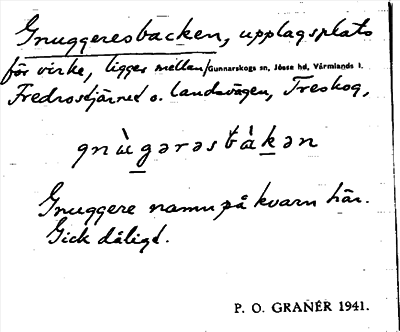 Gnuggeresbacken, upplagsplats
för virke, ligger mellan/Gunnarskogs sn, Jösse hd, Värmlands l.
Fredrostjärnet o. landsvägen, Treskog,
gnùgərəsbàkən
Gnuggere namn på kvarn här.
Gick dåligt.
P. O. GRANÉR 1941.